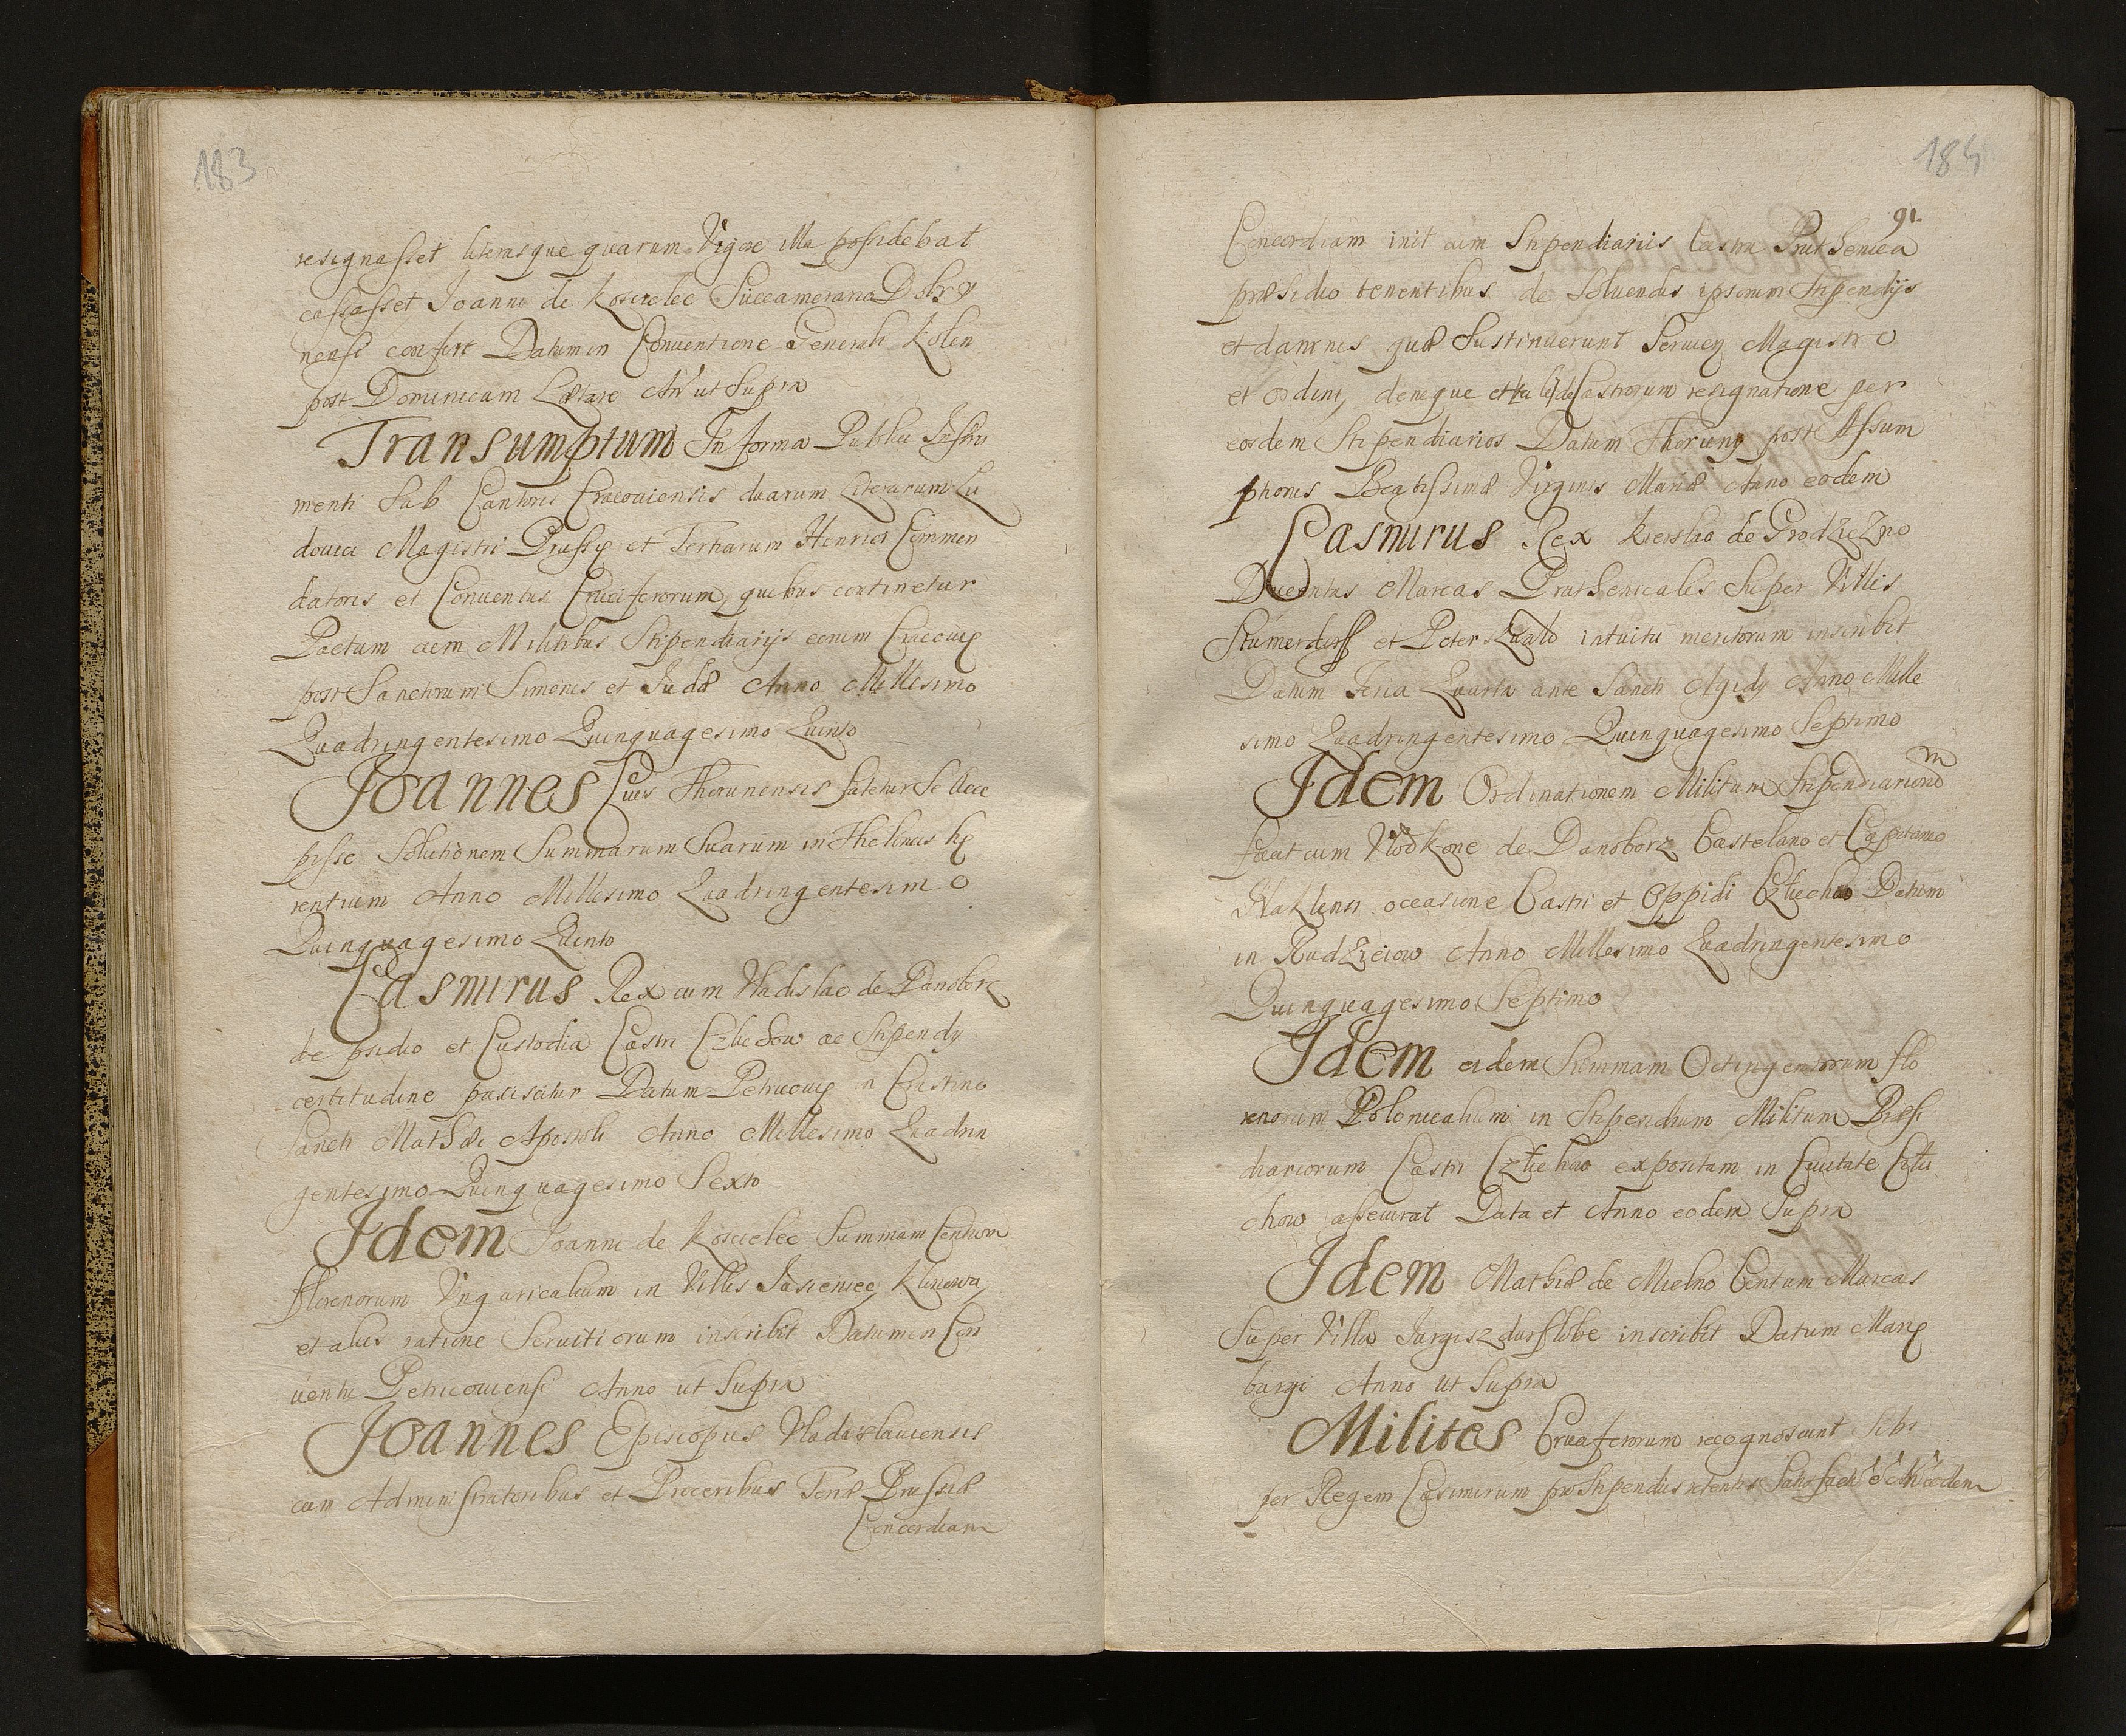 183
resignasset literasque quarum Vigore illa possidebat
cassasset Joanni de Koscielec Succamerario Dobry
nensi confert Datum in Conuentione Generali Kolen
post Dominicam Lætare An͂ ut Supra
Transumptum In forma Publici Instru
menti Sub Cantoris Cracouiensis duarum Literarum Lu
douici Magistri Prussiæ et Tertiarum Henrici Commen
datoris et Conuentus Cruciferorum, quibus continetur
Pactum cum Militibus Stipendiarijs eorum Cracouiæ
post Sanctorum Simonis et Judæ Anno Millesimo
Quadringentesimo Quinquagesimo Quinto
Joannes Ciuis Thorunensis fatetur Se Acce
pisse Solutionem Summarum Suarum in
Anno Millesimo Quadringentesimo
Quinquagesimo Quinto
Casmirus Rex cum Vladislao de Danaborz
de psidio et Custodia Castri Czluchow ac Stipendy
certitudine paciscitur Datum Petricouiæ in Crastino
Sancti Mathæi Apostoli Anno Millesimo Quadrin
gentesimo Quinquagesimo Sexto
Idem Joanni de Koscielec Summam Centum
florenorum Vngaricalium in Villis Jasieniec, Klinowa,
et alijs ratione Seruitiorum inscribit Datum in Con
uentu Petricouiensi Anno ut Supra
Joannes Episcopus Vladislauiensis
cum Administratoribus et Proceribus Terræ Prussiæ
Concordiam
184
91.
Concordiam init cum Stipendiariis Castra Pruthenica
præsidio tenentibus de Soluendis ipsorum Stipendijs
et damnis quæ Sustinuerunt Magistro
et ordini, denique Castrorum resignatione per
eosdem Stipendiarios Datum Thoruniæ post Assum
ptionis Beatissimæ Virginis Mariæ Anno eodem
Casmirus Rex de Grodziezno
Ducentas Marcas Pruthenicales Super Villis
Stumerdorff et Peterszwald intuitu meritorum inscribit
Datum Feria Quarta ante Sancti Ægidy Anno Mille
simo Quadringentesimo Quinquagesimo Septimo
Idem Ordinationem Militum Stipendiariorum
facit cum Wlodkone de Danaborz Castelano et Capitaneo
Naklensi occasione Castri et Oppidi Człuchow Datum
in Anno Millesimo Quadringentesimo
Quinquagesimo Septimo
Idem eidem Summam Octingentorum flo
renorum Polonicalium in Stipendium Militum Præsi
diariorum Castri Człuchow expositam in Ciuitate Człu
chow assecurat Data et Anno eodem Supra
Idem Mathiæ de Mielno Centum Marcas
Super Villa inscribit Datum Mariæ
burgi Anno ut Supra
Milites Cruciferorum recognoscunt Sibi
per Regem Casimirum pro Stipendiis retentis Satisfactū eē Aō eodem